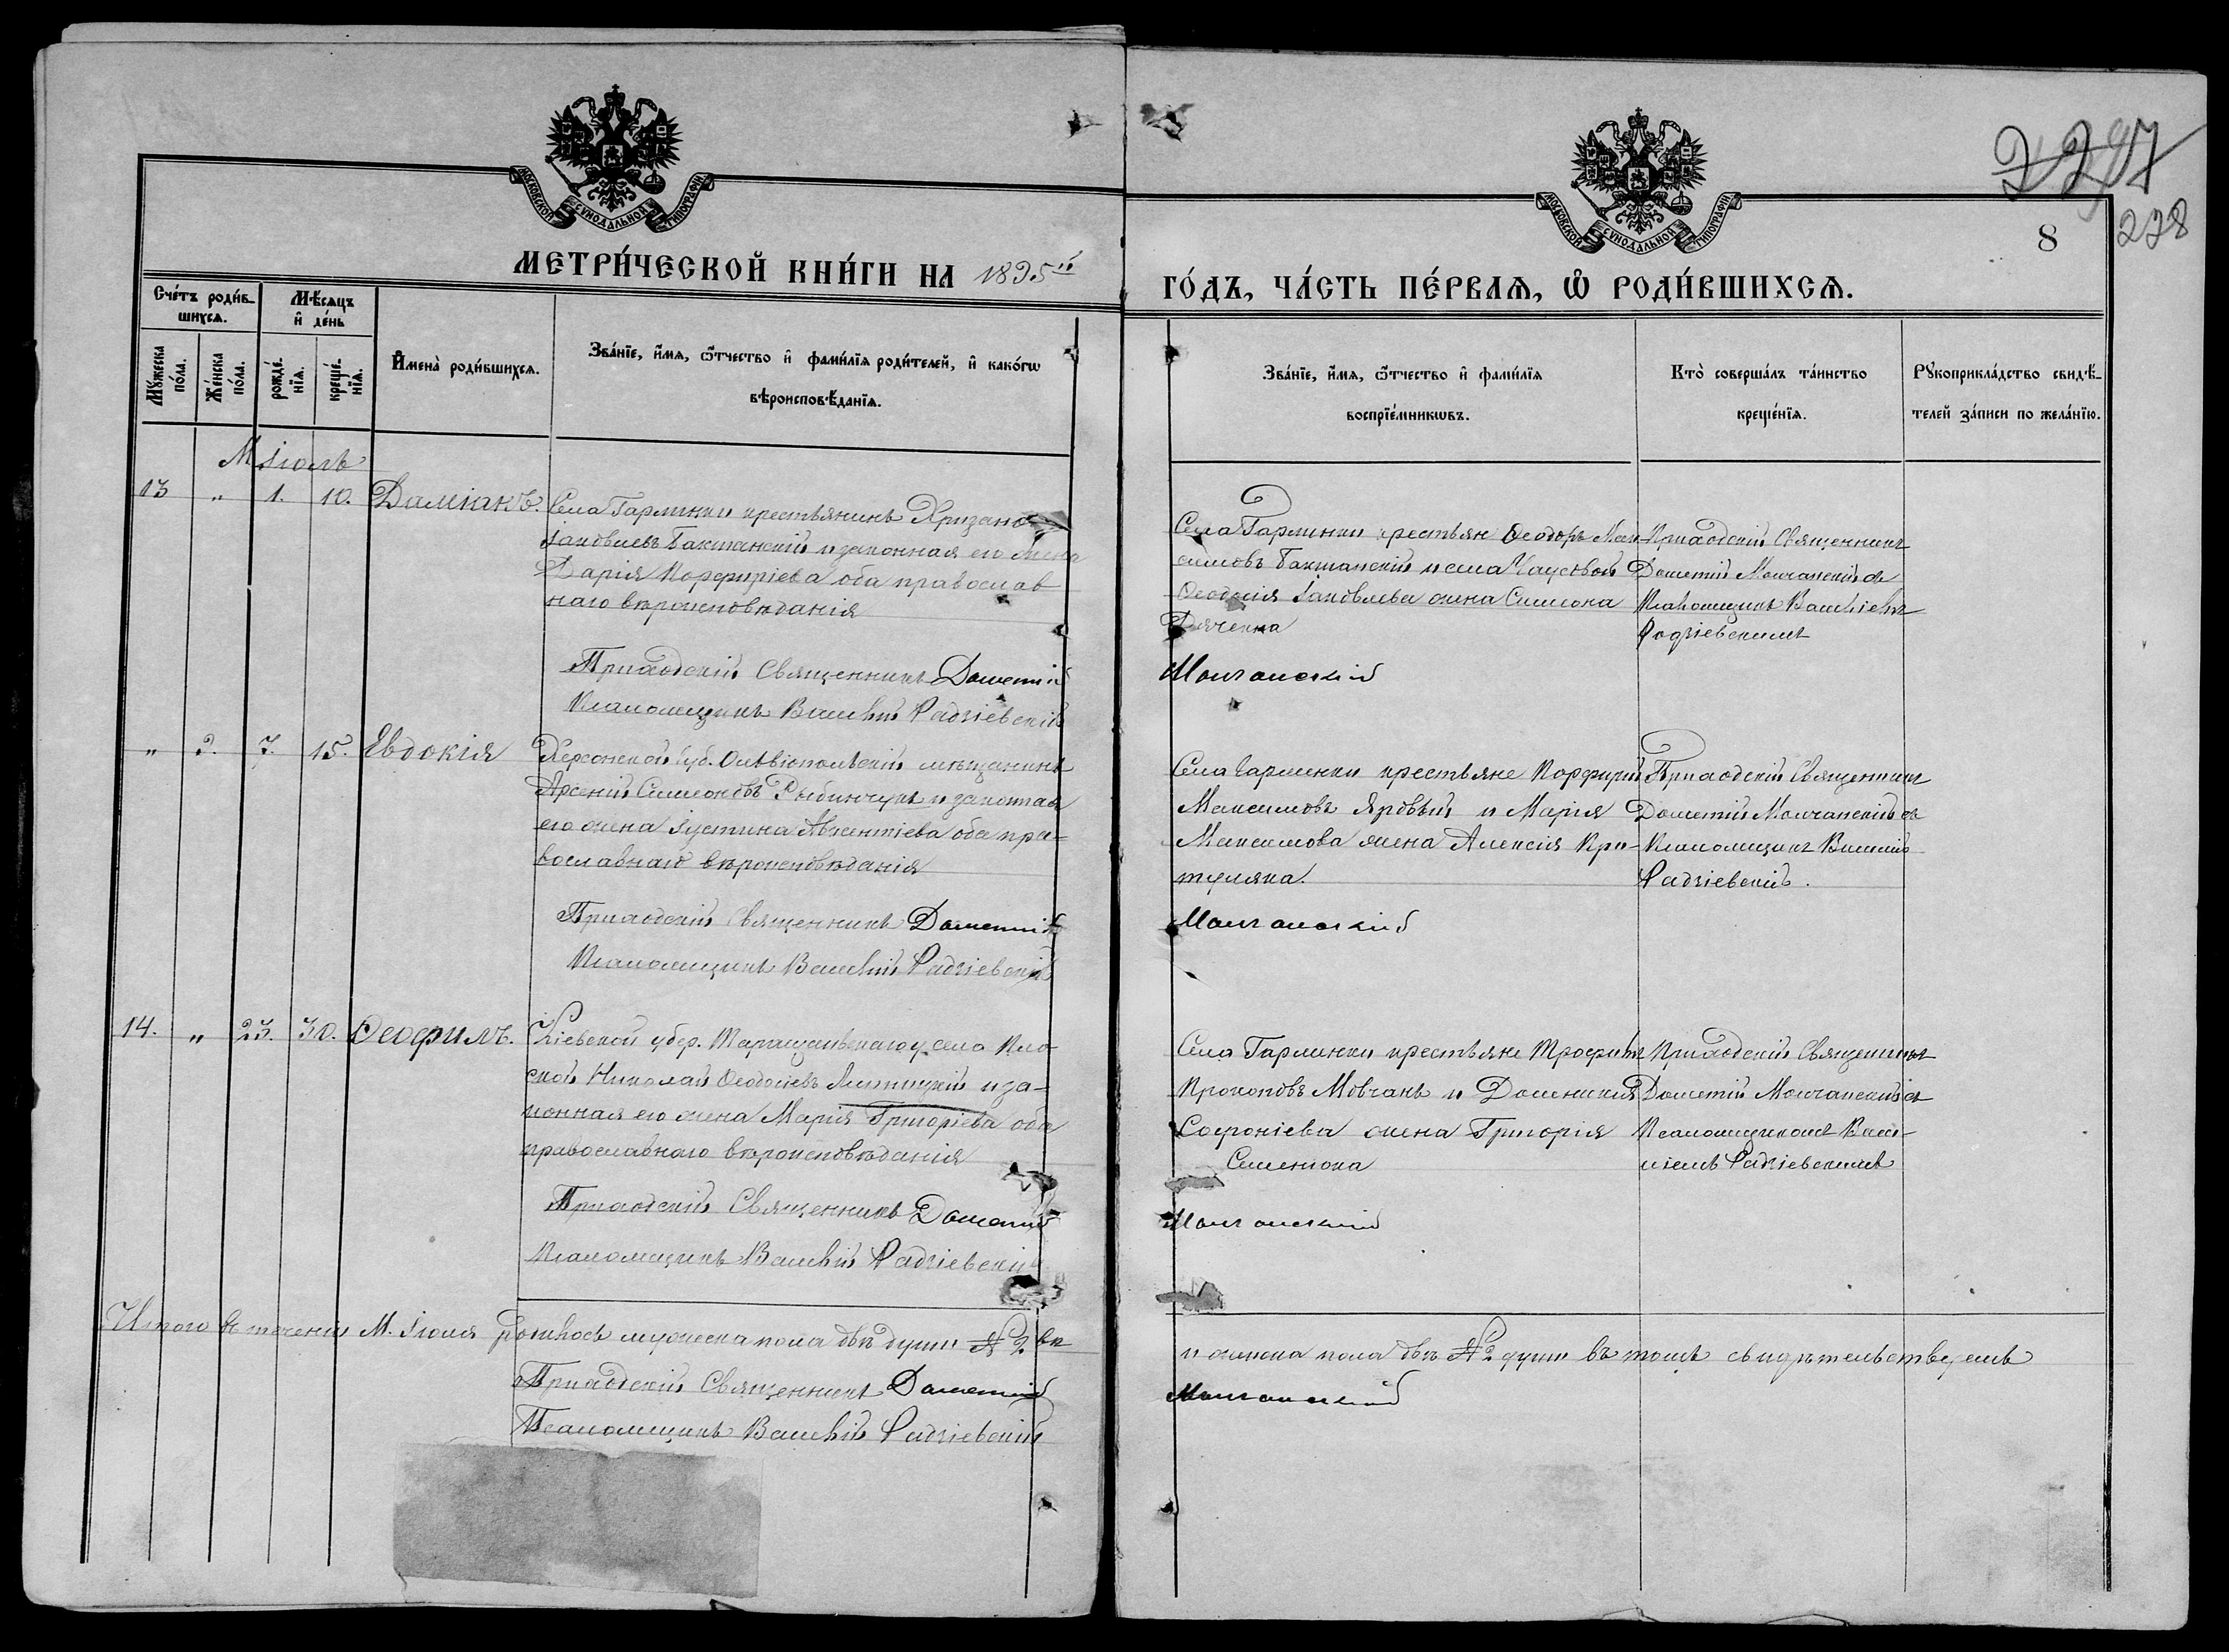 МОСКОВСКОЙ СѴНОДАЛЬНОЙ ТИПОГРАФІИ
МЕТРИ́ЧЕСКОЙ КНИ́ГИ НА 1895й
Сче́тъ роди́в-
шихсѧ.
Мѣ́сѧцъ
и҆ де́нь
Мꙋ́жеска
по́ла.
Же́нска
по́ла.
рожде́-
нїѧ.
креще́-
нїѧ.
И҆мена̀ роди́вшихсѧ.
Зва́нїе, и҆́мѧ, ѻ҆́тчество и҆ фами́лїѧ роди́телей, и҆ како́гѡ
вѣроисповѣ́данїѧ.
М Іюль
13 " 1. 10. Даміанъ.
Села Гарминки крестьянинъ Хризанъ
Іаковлевъ Бакшанскій и законная его жена
Дарія Порфиріева оба православ
наго вѣроисповѣданія
Приходскій Священникъ Дометій
Псаломщикъ Василій Радзіевскій
" 2. 7. 15. Евдокія
Херсонской Губ. Ольвіопольскій мѣщанинъ
Арсеній Симеоновъ Рыбинчукъ и законная
его жена Іустина Авксентіева оба пра-
вославнаго вѣроисповѣданія
Приходскій Священникъ Дометій
Псаломщикъ Василій Радзіевскій
14. " 23. 30. Ѳеофилъ.
Кіевской губер. Таращанскаго у села Пло-
ской Николай Ѳеодосіевъ Липницкій и за-
конная его жена Марія Григоріева оба
православнаго вѣроисповѣданія
Приходскій Священникъ Дометій
Псаломщикъ Василій Радзіевскій
Итого въ теченіи М. Іюля родилось мужеска пола двѣ души № 2
Приходскій Священникъ Дометій
Псаломщикъ Василій Радзіевскій
МОСКОВСКОЙ СѴНОДАЛЬНОЙ ТИПОГРАФІИ
8
278
ГО́ДЪ, ЧА́СТЬ ПЕ́РВАѦ, Ѡ҆ РОДИ́ВШИХСѦ.
Зва́нїе, и҆́мѧ, ѻ҆́тчество и҆ фами́лїѧ
воспрїе́мникѡвъ.
Кто̀ соверша́лъ та́инство
креще́нїѧ.
Рꙋкоприкла́дство свидѣ́-
телей за́писи по жела́нїю.
Села Гарминки крестьян Ѳеодоръ Мак-
симовъ Бакшанскій и села
Ѳеодосія Іаковлева жена Симеона
Дяченка
Молчанскій
Приходскій Священникъ
Дометій Молчанскій съ
Псаломщикъ Василіемъ
Радзіевскимъ
Села Гарминки крестьяне Порфирій
Максимовъ Яровый и Марія
Максимова жена Алексія При-
туляка.
Молчанскій
Приходскій Священникъ
Дометій Молчанскій съ
Псаломщикъ Василій
Радзіевскій.
Села Гарминки крестьяне Трофимъ
Прокоповъ Мовчанъ и Домникия
Софроніева жена Григорія
Семенюка
Молчанскій
Приходскій Священникъ
Дометій Молчанскій съ
Псаломщикомъ Васи-
ліемъ Радзіевскимъ
и женска пола двѣ № 2 души въ томъ свидѣтельствуемъ
Молчанскій